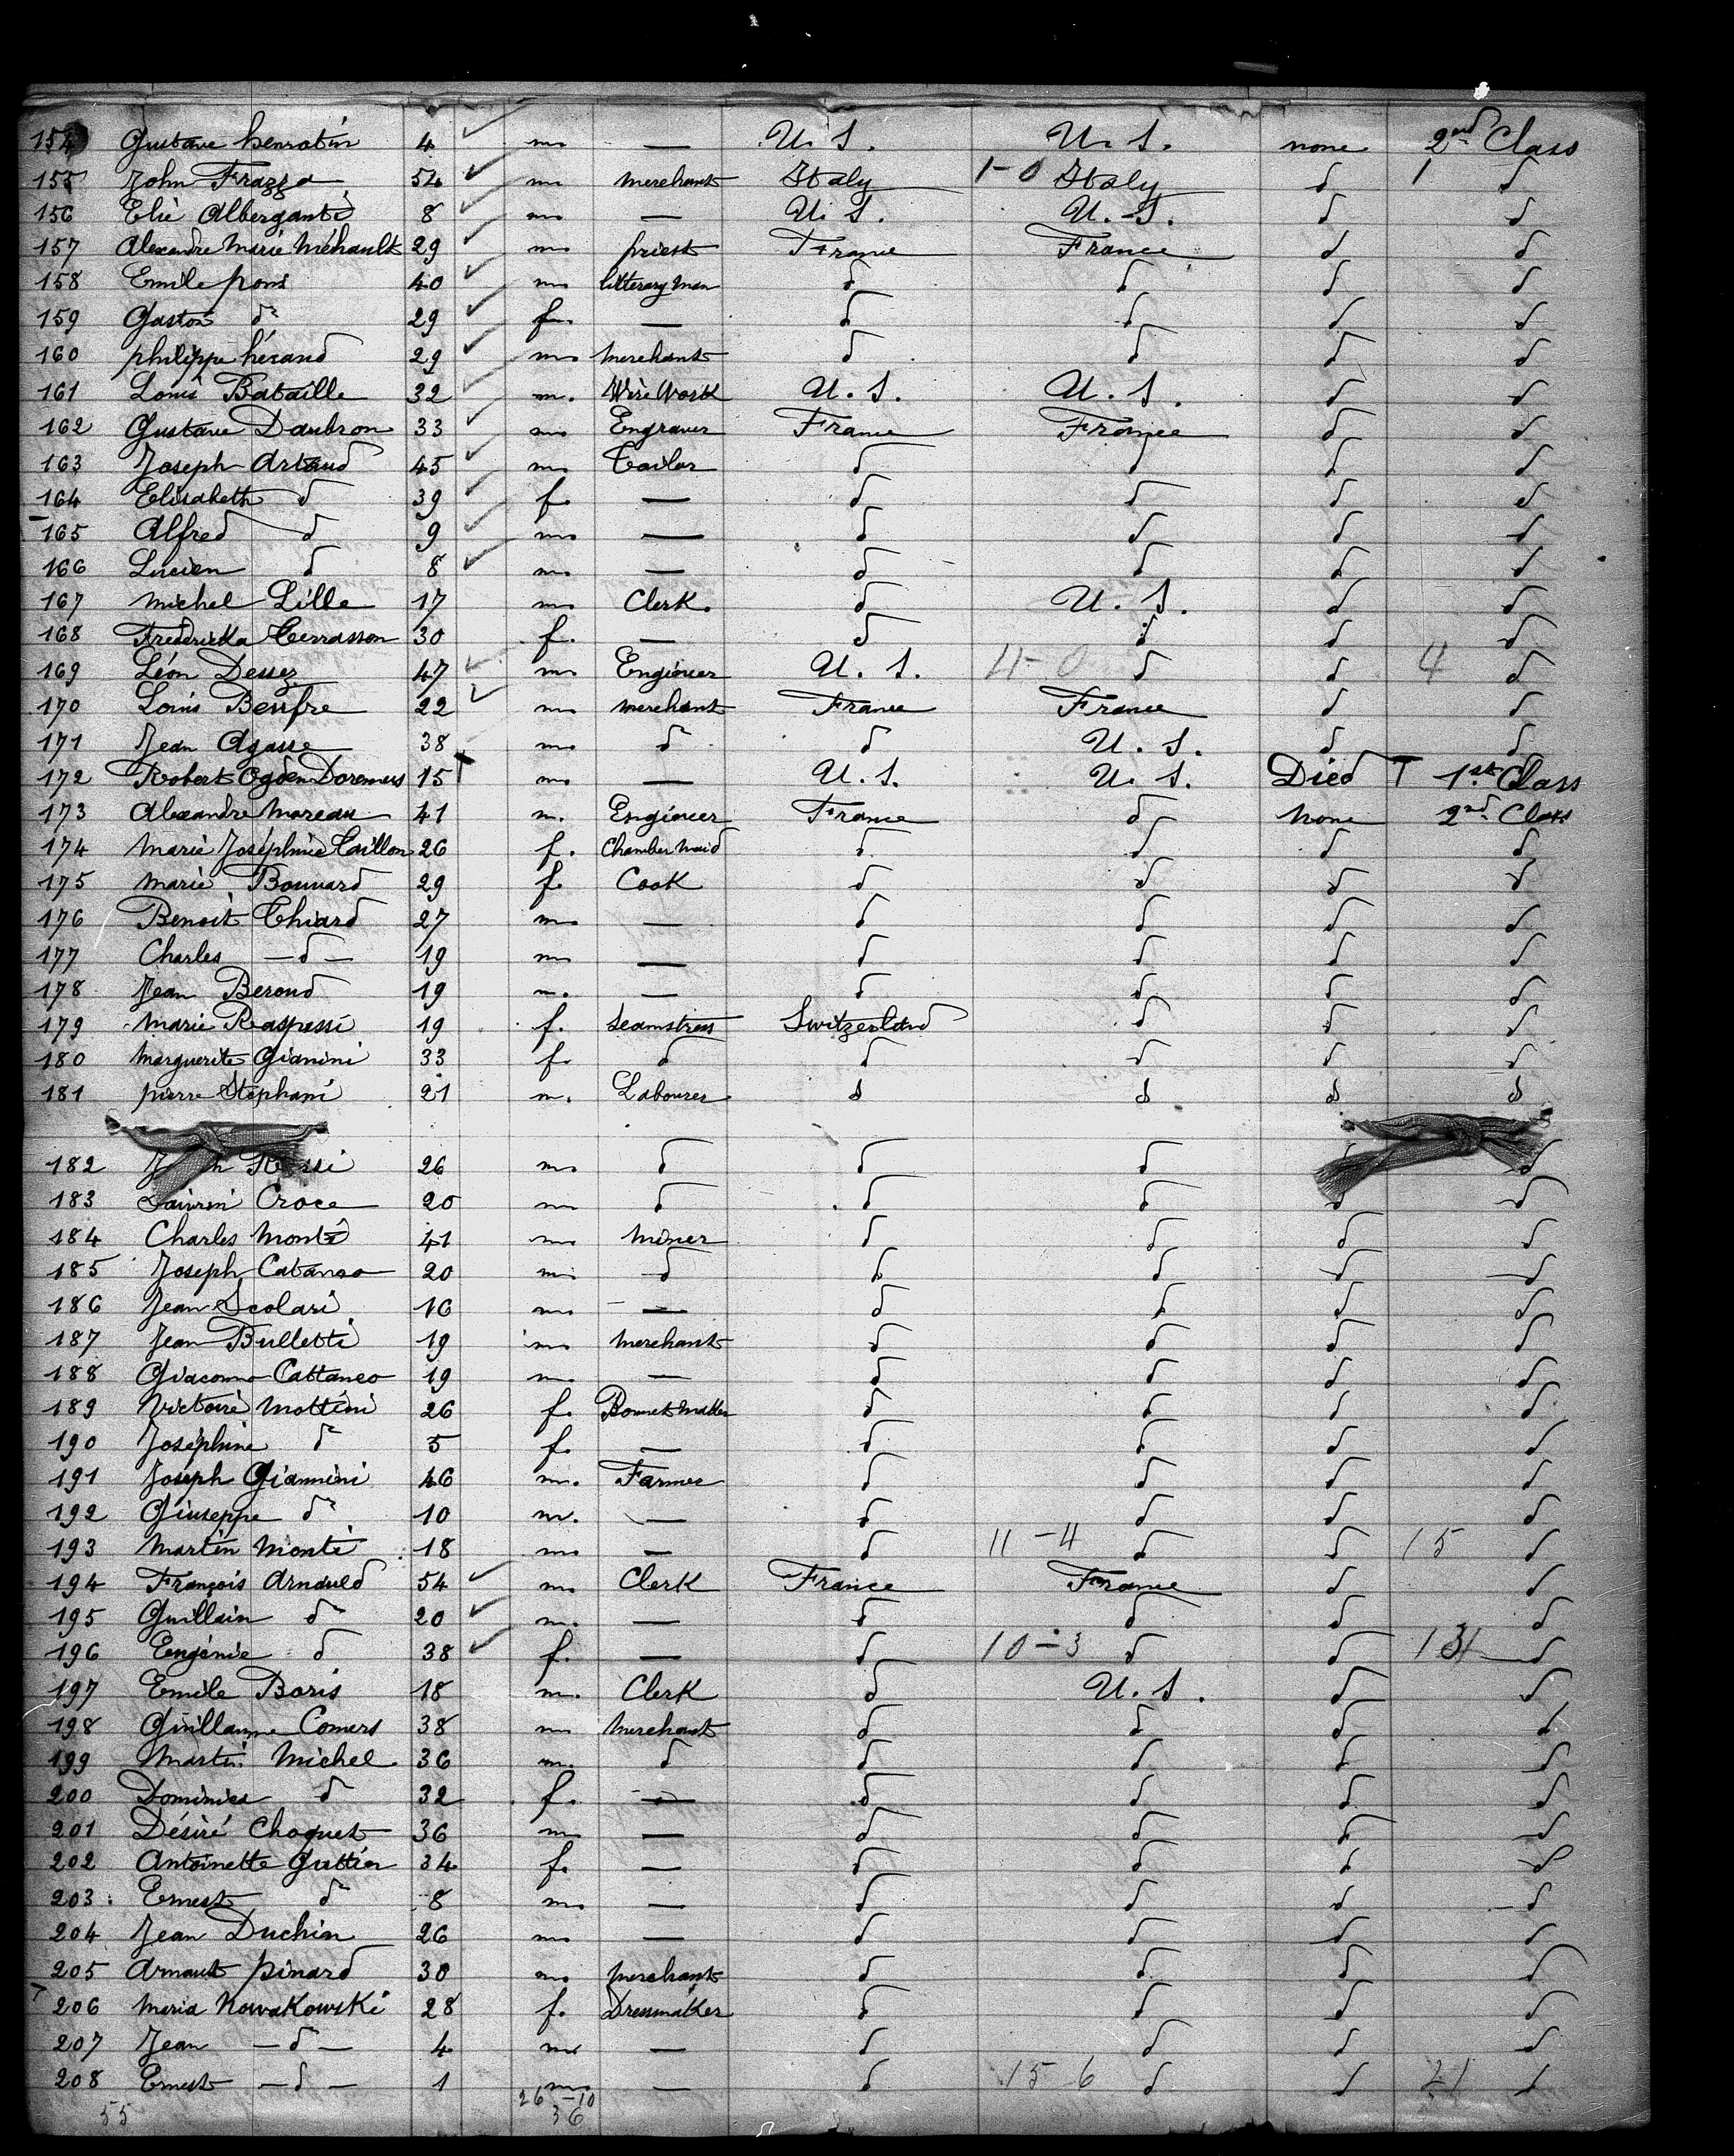 154 Gustave henrotin 4 m. — U. S. U. S. none 2nd Class
155 John Frazza 54 m. merchant Italy 1-0 Italy d 1 d
156 Elie Alberganti 8 m. — U. S. U. S. d d
157 Alexandre Marie Méhault 29 m. priest France France d d
158 Emile pons 40 m. litterary man d d d d
159 Gaston do 29 f. — d d d d
160 philippe hérand 29 m. merchant d d d d
161 Louis Bataille 32 m. Wire Work U. S. U. S. d d
162 Gustave Daubron 33 m. Engraver France France d d
163 Joseph Artaud 45 m. Tailor d d d d
164 Elisabeth d 39 f. — d d d d
165 Alfred d 9 m. — d d d d
166 Lucien d 8 m. — d d d d
167 michel Lille 17 m. Clerk. d U. S. d d
168 Frederikka Terrasson 30 f. — d d d d
169 Léon Dessez 47 m. Engineer U. S. 4-0 d d 4 d
170 Louis 22 m. merchant France France d d
171 Jean Agasse 38 m. d d U. S. d d
172 Robert Ogden Doremus 15 m. — U. S. U. S. Died T 1st Class
173 Alexandre Moreau 41 m. Engineer France d none 2nd Class
174 Marie Joséphine Caillon 26 f. Chamber Maid d d d d
175 Marie Bouvard 29 f. Cook d d d d
176 Benoit Thiard 27 m. — d d d d
177 Charles — d — 19 m. — d d d d
178 Jean Beroud 19 m. — d d d d
179 Marie Raspessi 19 f. Seamstress Switzerland d d d
180 Marguerite Gianini 33 f. d d d d d
181 pierre Stephani 21 m. Labourer d d d d
182 26 m. d d d d
183 Croce 20 m. d d d d d
184 Charles Monti 41 m. Miner d d d d
185 Joseph Catanao 20 m. d d d d d
186 Jean Scolari 16 m. — d d d d
187 Jean Bulletti 19 m. merchant d d d d
188 Giacomo Cattaneo 19 m. — d d d d
189 Victoire Mottini 26 f. Bonnet Maker d d d d
190 Joséphine do 5 f. — d d d d
191 Joseph Giannini 46 m. Farmer d d d d
192 Giuseppe do 10 m. — d d d d
193 Martin Monti 18 m. — d 11-4 d d 15 d
194 François Arnauld 54 m. Clerk France France d d
195 Guillain do 20 m. — d d d d
196 Eugénie d 38 f. — d 10-3 d d d
197 Emile Boris 18 m. Clerk d U. S. d d
198 Guillaume Comers 38 m. merchant d d d d
199 Martin Michel 36 m. d d d d d
200 Dominica d 32 f. — d d d d
201 Désiré Choquet 36 m. — d d d d
202 Antoinette Guttier 34 f. — d d d d
203 Ernest do 8 m. — d d d d
204 Jean Duchin 26 m. — d d d d
205 Arnaut pinard 30 m. merchant d d d d
206 Maria Nowakowski 28 f. Dressmaker d d d d
207 Jean — d — 4 m. — d d d d
208 Ernest — d — 1 m. — d 15-6 d d 21 d
55 26-10
36